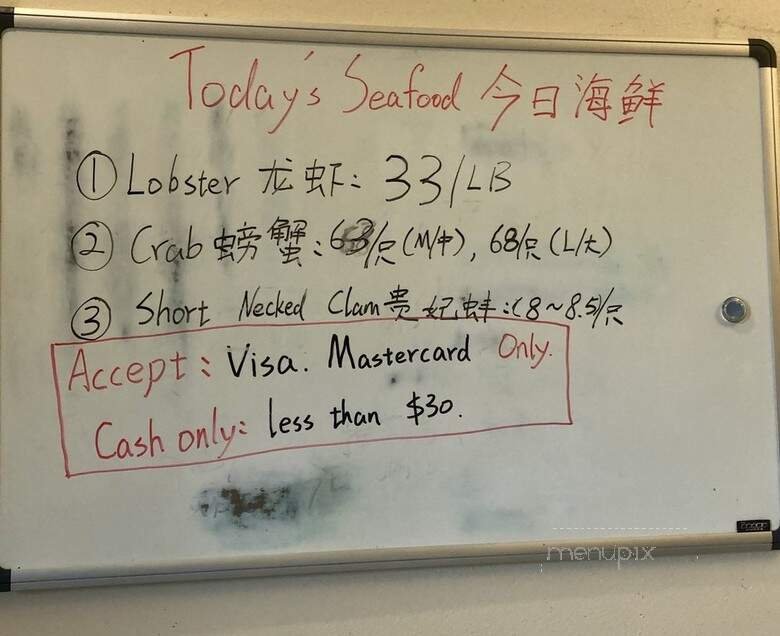 Today's Seafood 今日海鲜
① Lobster 龙虾: 33/LB
② Crab 螃蟹: /只(M/中), 68/只(L/大)
③ Short Necked Clam 贵妃蚌: (8~8.5)/只
Accept: Visa. Mastercard Only.
Cash only: less than $30.
menupix